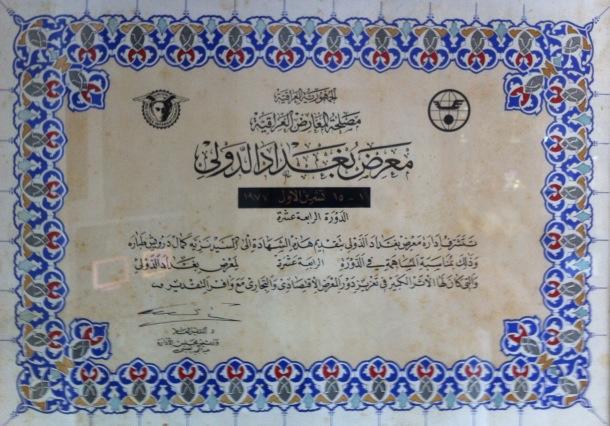 الجمهورية العراقية
مصلحة المعارض العراقية
معرض بغداد الدولي
١ - ١٥ تشرين الاول ١٩٧٧
الدورة الرابعة عشرة
تتشرف ادارة معرض بغداد الدولي بتقديم هذه الشهادة الى السيد نزيه كمال درويش طباره
وذلك لمناسبة المساهمة في الدورة الرابعة عشرة لمعرض بغداد الدولي
والتي كان لها الأثر الكبير في تعزيز دور المعرض الاقتصادي والتجاري مع وافر التقدير